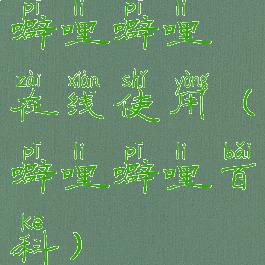 pī lī pī lī
噼哩噼哩
zài xiàn shǐ yòng
在线使用（
pī lī pī lī bǎi
噼哩噼哩百
kē
科）